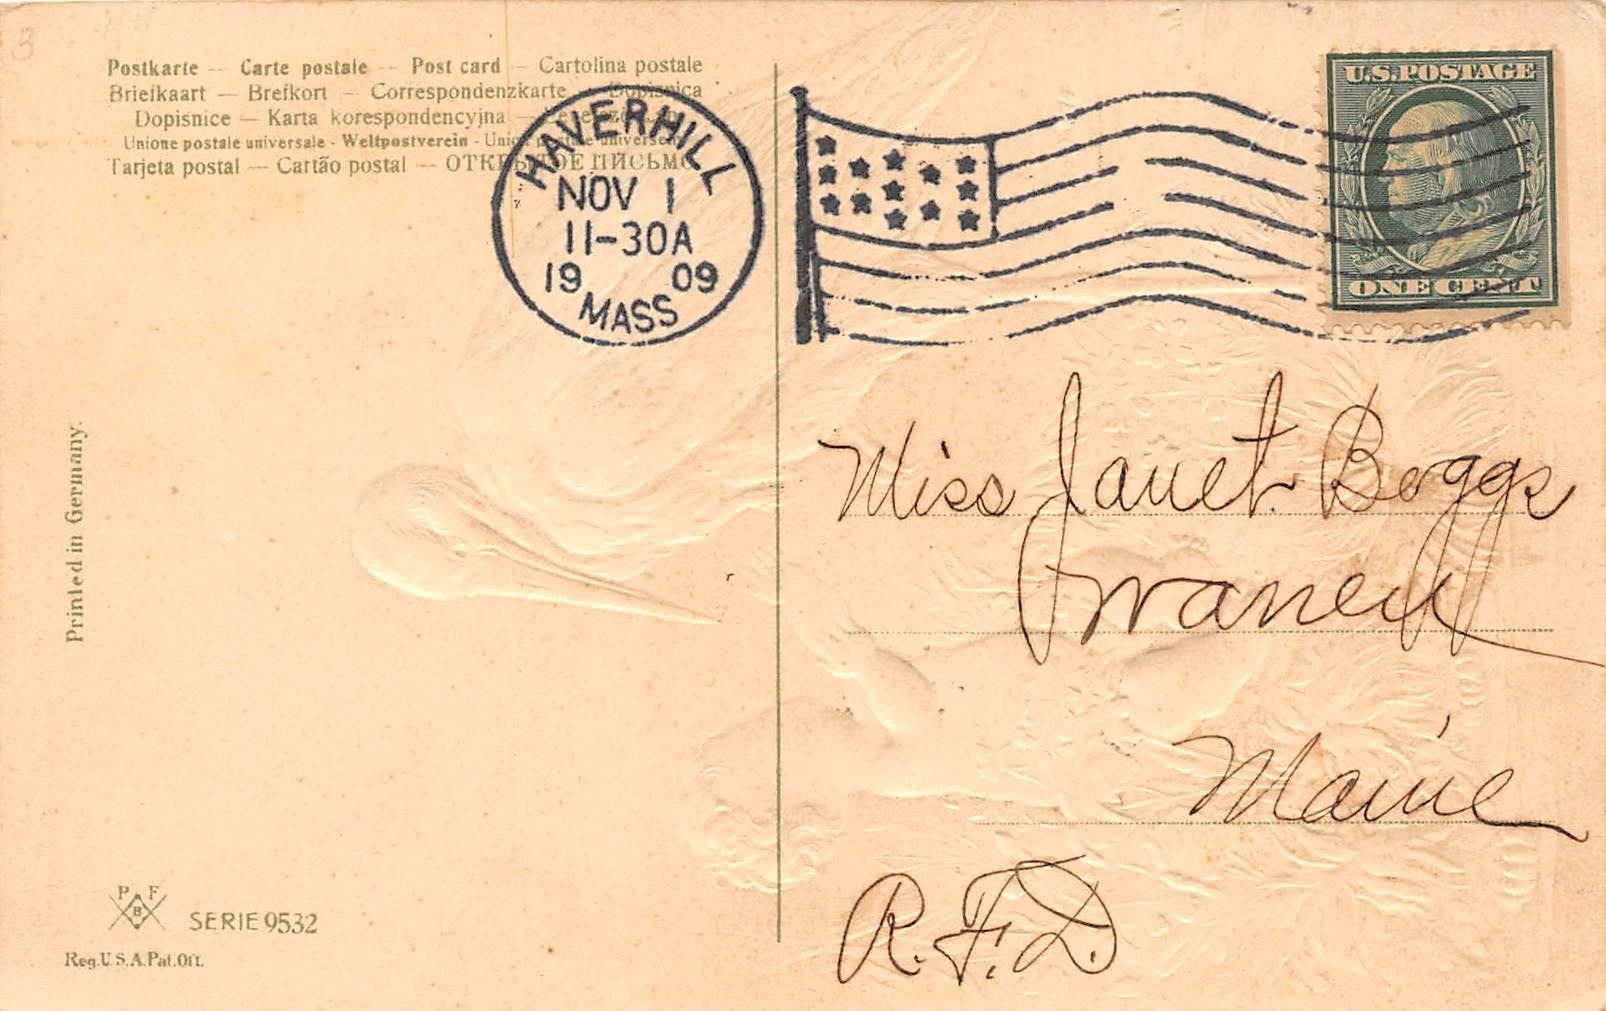 3
Postkarte — Carte postale — Post card — Cartolina postale
Briefkaart — Brefkort — Correspondenzkarte Dopisnica
Dopisnice — Karta korespondencyjna —
Unione postale universale - Weltpostverein - Union postale universelle
Tarjeta postal — Cartão postal — ОТКРЫТОЕ ПИСЬМО
HAVERHILL
NOV 1
11-30A
19 09
MASS
U.S. POSTAGE
ONE CENT
Miss Janet Boggs
Maine
R.F.D.
Printed in Germany.
P F
B
SERIE 9532
Reg. U.S.A. Pat. Off.